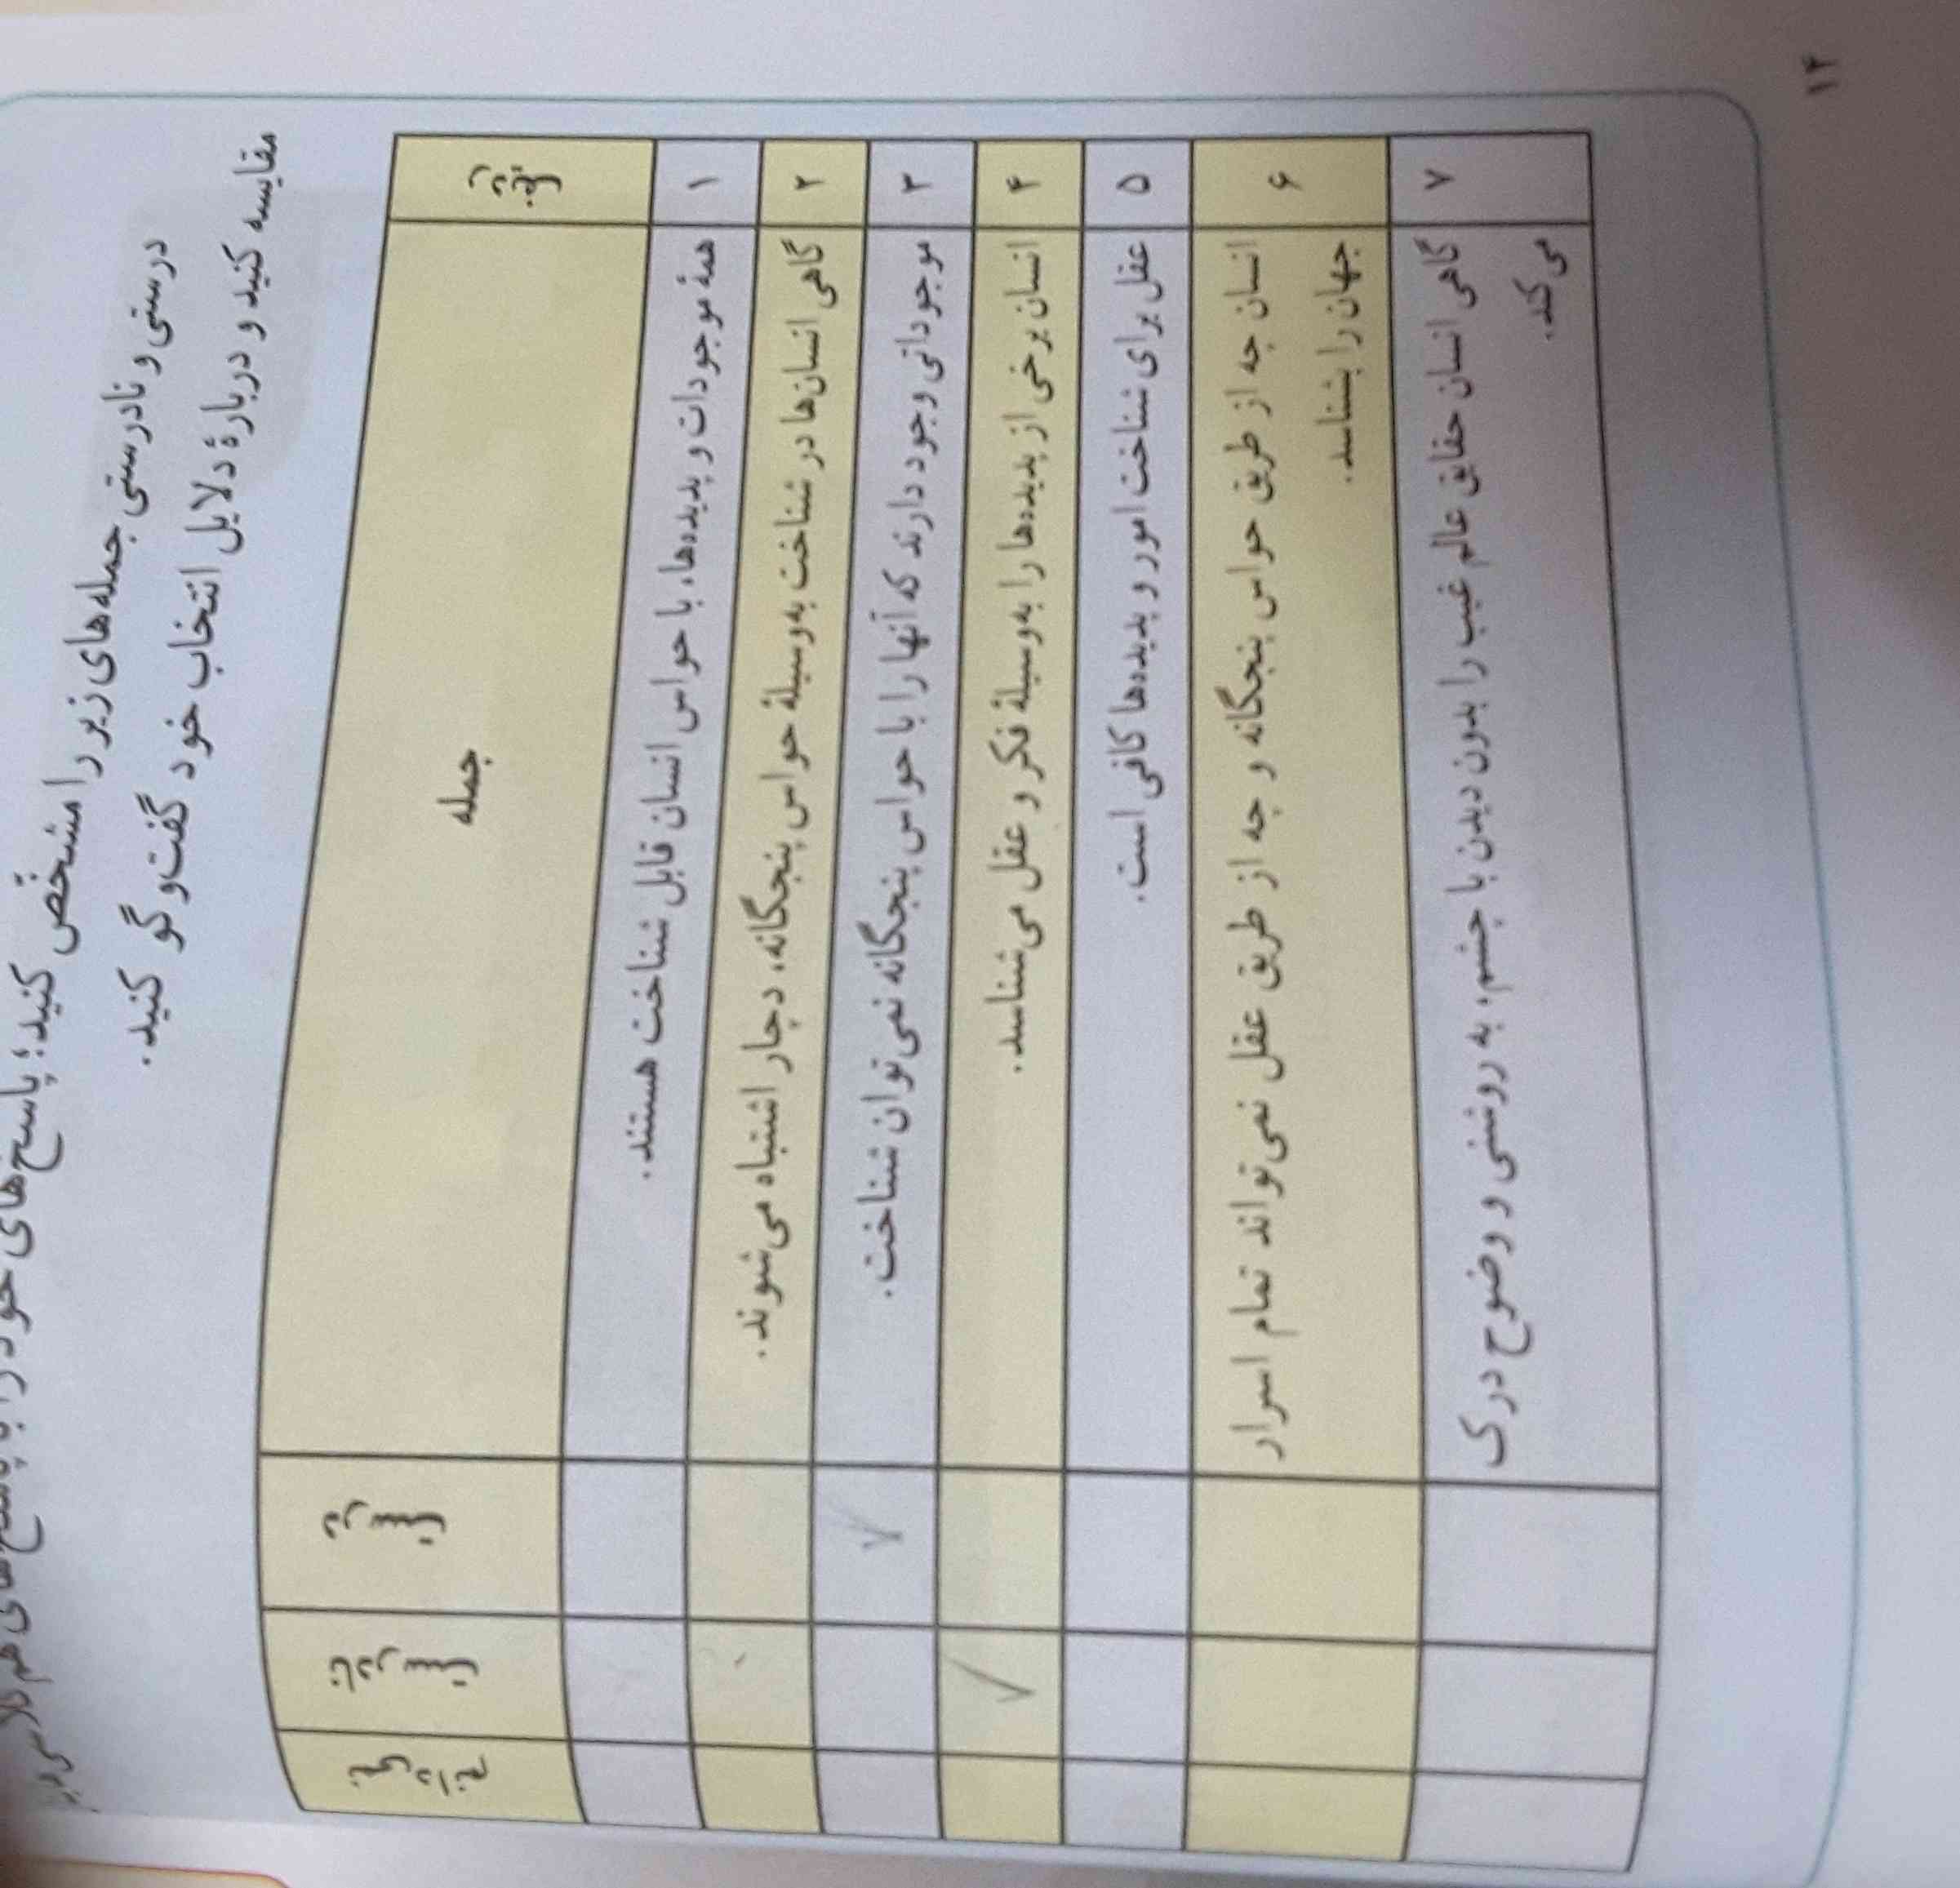 درستی و نادرستی جمله‌های زیر را مشخّص کنید؛ پاسخ‌های خود را با پاسخ‌های هم‌کلاسی
مقایسه کنید و دربارهٔ دلایل انتخاب خود گفت‌وگو کنید.
جمله
۱ همهٔ موجودات و پدیده‌ها، با حواس انسان قابل شناخت هستند.
۲ گاهی انسان‌ها در شناخت به‌وسیلهٔ حواس پنجگانه، دچار اشتباه می‌شوند.
۳ موجوداتی وجود دارند که آنها را با حواس پنجگانه نمی‌توان شناخت. ✓
۴ انسان برخی از پدیده‌ها را به‌وسیلهٔ فکر و عقل می‌شناسد. ✓
۵ عقل برای شناخت امور و پدیده‌ها کافی است.
۶ انسان چه از طریق حواس پنجگانه و چه از طریق عقل نمی‌تواند تمام اسرار
جهان را بشناسد.
۷ گاهی انسان حقایق عالم غیب را بدون دیدن با چشم، به روشنی و وضوح درک
می‌کند.
۱۲